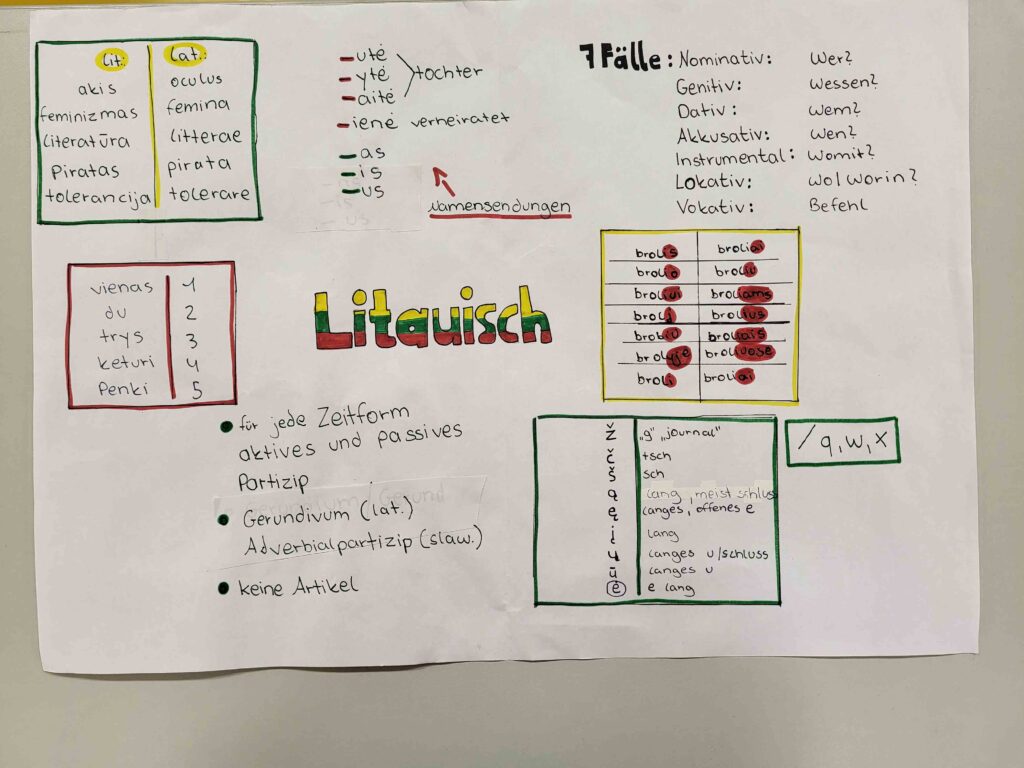 lit.: lat.:
akis oculus
feminizmas femina
literatūra litterae
Piratas pirata
tolerancija tolerare
-utė
-ytė
-aitė
tochter
-ienė verheiratet
-as
-is
-us
Namensendungen
7 Fälle:
Nominativ: Wer?
Genitiv: Wessen?
Dativ: Wem?
Akkusativ: Wen?
Instrumental: Womit?
Lokativ: Wo/Worin?
Vokativ: Befehl
vienas 1
du 2
trys 3
keturi 4
Penki 5
Litauisch
brolis broliai
brolio brolių
broliui broliams
brolį brolius
broliu broliais
brolyje broliuose
broli broliai
• für jede Zeitform
aktives und passives
Partizip
• Gerundivum (lat.)
Adverbialpartizip (slaw.)
• keine Artikel
ž „g" „journal"
č tsch
š sch
ą lang, meist schluss
ę langes, offenes e
į lang
ų langes u/schluss
ū langes u
ė e lang
/ q, w, x